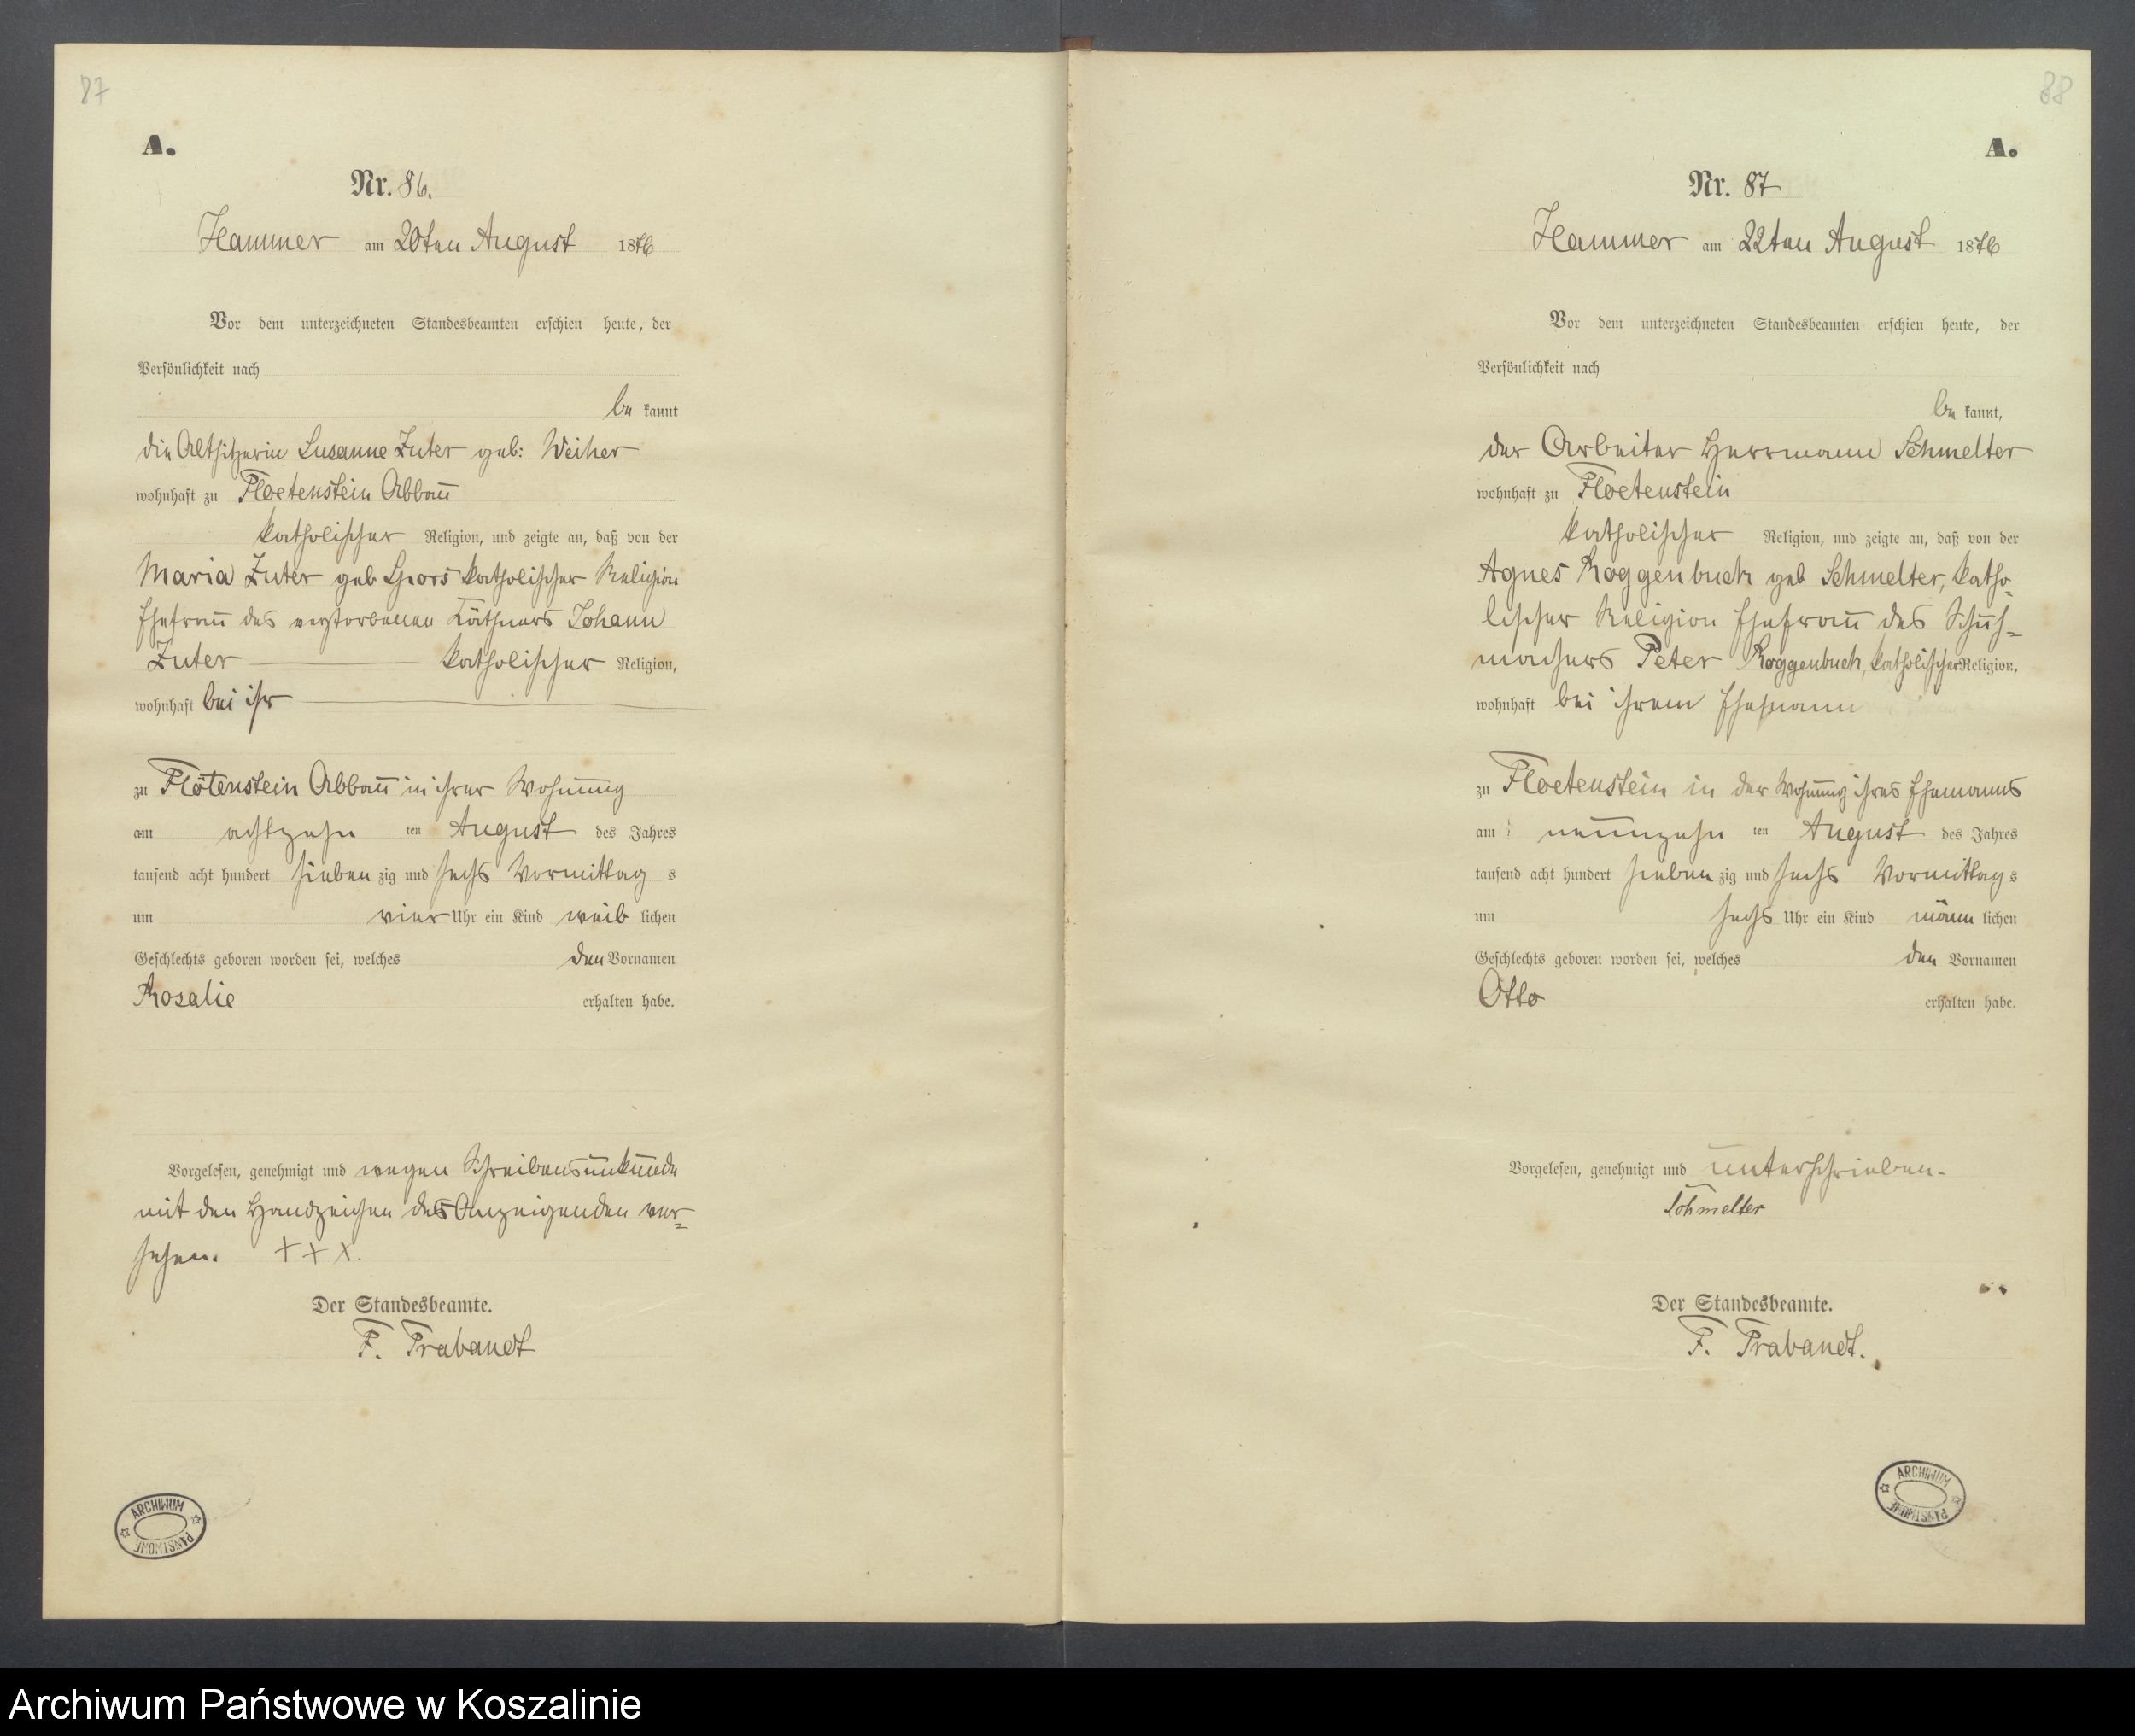 87
A.
Nr. 86.
Hammer am 20ten August 1876
Vor dem unterzeichneten Standesbeamten erschien heute, der
Persönlichkeit nach
be kannt
die Altsitzerin Susanne Zuter geb: Weiher
wohnhaft zu Floetenstein Abbau
katholischer Religion, und zeigte an, daß von der
Maria Zuter geb katholischer Religion
Ehefrau des verstorbenen Käthners Johann
Zuter katholischer Religion,
wohnhaft bei ihr
zu Flötenstein Abbau in ihrer Wohnung
am achtzehn ten August des Jahres
tausend acht hundert sieben zig und sechs Vormittag s
um vier Uhr ein Kind weib lichen
Geschlechts geboren worden sei, welches den Vornamen
Rosalie erhalten habe.
Vorgelesen, genehmigt und wegen Schreibensunkunde
mit den Handzeichen des Anzeigenden ver=
sehen. + + x.
Der Standesbeamte.
F. Trabandt
ARCHIWUM PAŃSTWOWE
88
A.
Nr. 87
Hammer am 22ten August 1876
Vor dem unterzeichneten Standesbeamten erschien heute, der
Persönlichkeit nach
be kannt,
der Arbeiter Herrmann Schmelter
wohnhaft zu Floetenstein
katholischer Religion, und zeigte an, daß von der
Agnes Roggenbuck geb Schmelter, katho=
lischer Religion Ehefrau des Schuh=
machers Peter Roggenbuck, katholischer Religion,
wohnhaft bei ihrem Ehemann
zu Floetenstein in der Wohnung ihres Ehemanns
am neunzehn ten August des Jahres
tausend acht hundert sieben zig und sechs Vormittag s
um sechs Uhr ein Kind männ lichen
Geschlechts geboren worden sei, welches den Vornamen
Otto erhalten habe.
Vorgelesen, genehmigt und unterschrieben.
Schmelter
Der Standesbeamte.
F. Trabandt.
ARCHIWUM PAŃSTWOWE
Archiwum Państwowe w Koszalinie